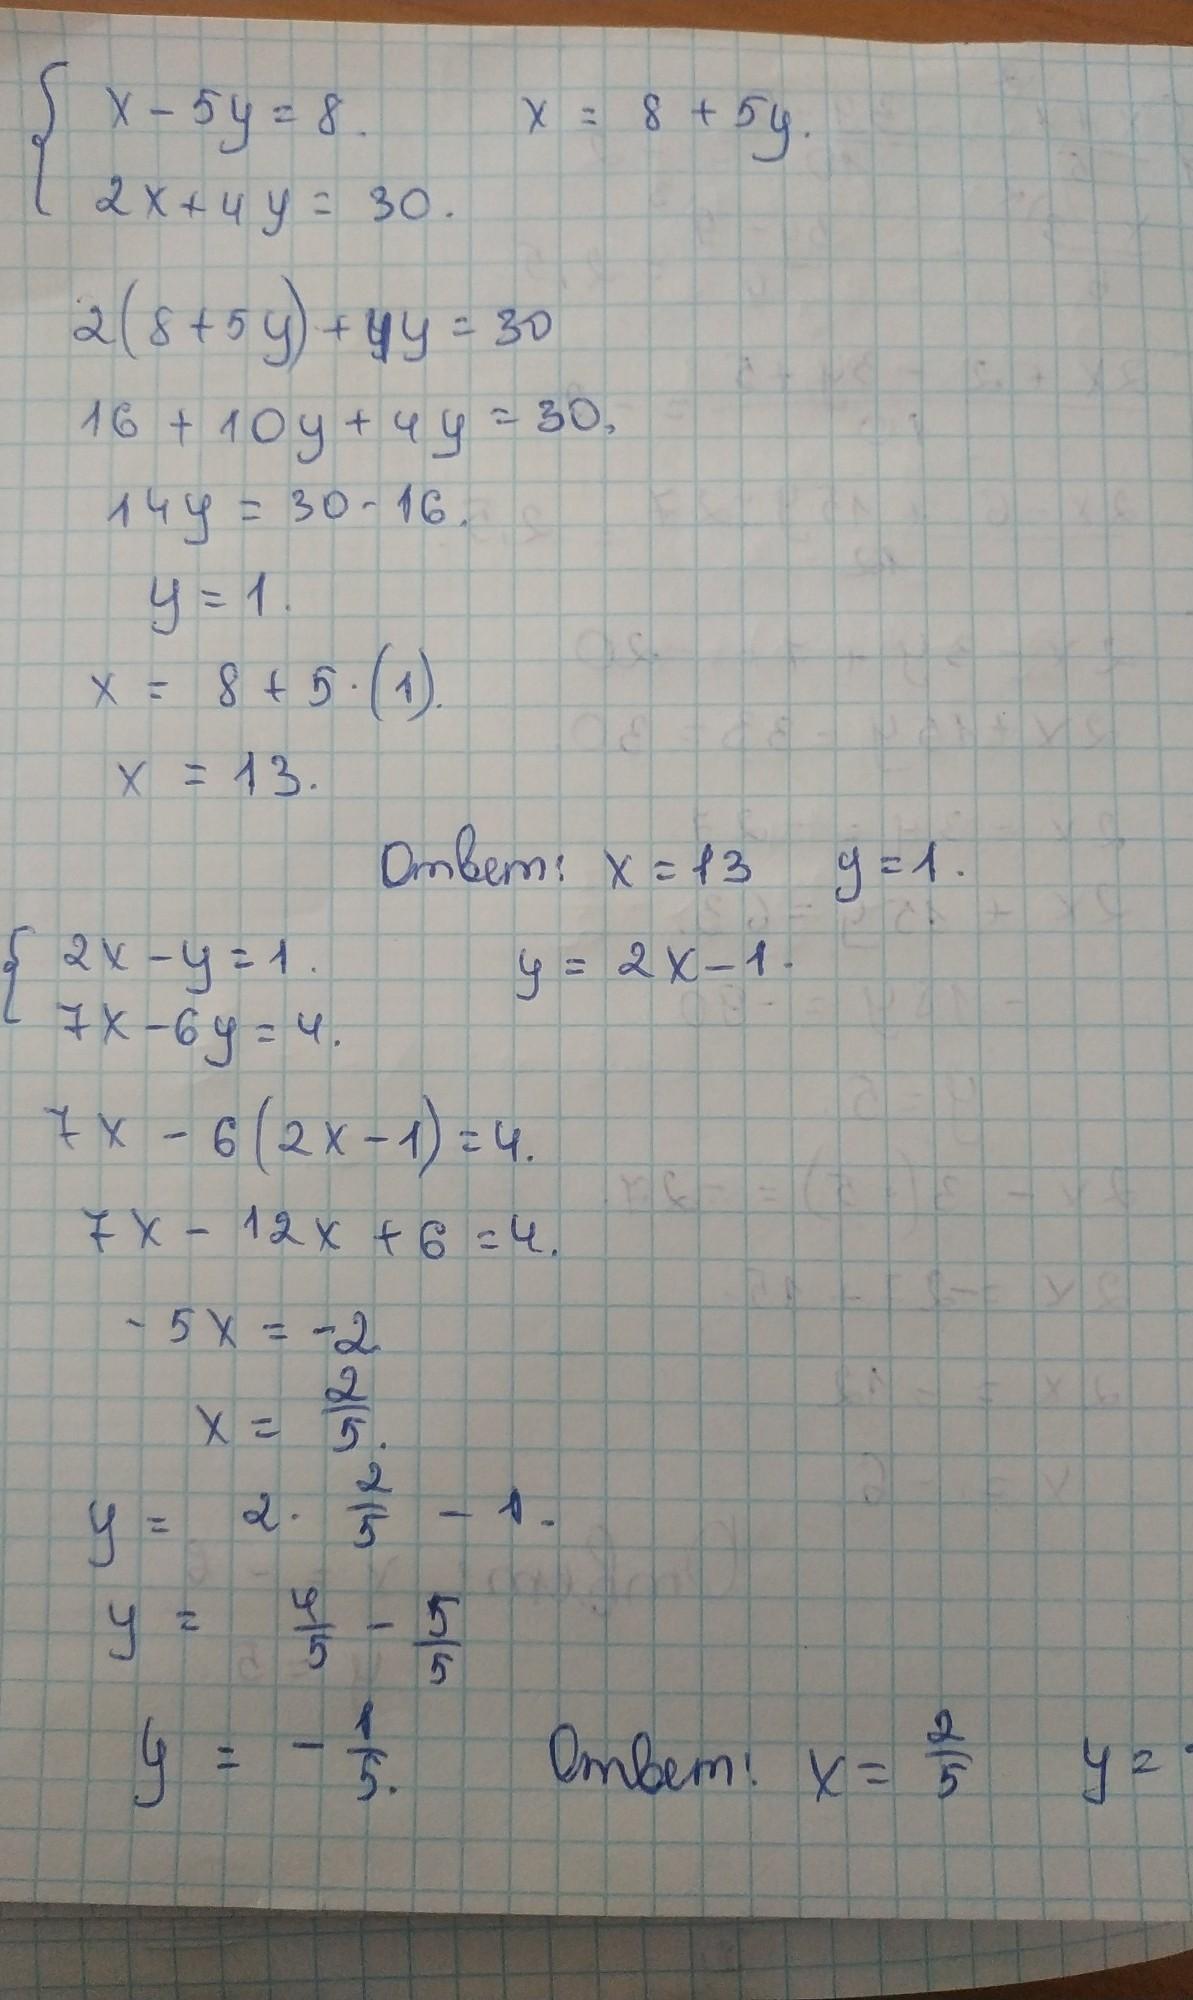 x - 5y = 8. x = 8 + 5y.
2x + 4y = 30.
2(8 + 5y) + 4y = 30
16 + 10y + 4y = 30,
14y = 30 - 16.
y = 1.
x = 8 + 5·(1).
x = 13.
Ответ: x = 13 y = 1.
2x - y = 1. y = 2x - 1.
7x - 6y = 4.
7x - 6(2x - 1) = 4.
7x - 12x + 6 = 4.
-5x = -2
x = 2/5.
y = 2· 2/5 - 1.
y = 4/5 - 5/5
y = - 1/5. Ответ: x = 2/5 y =